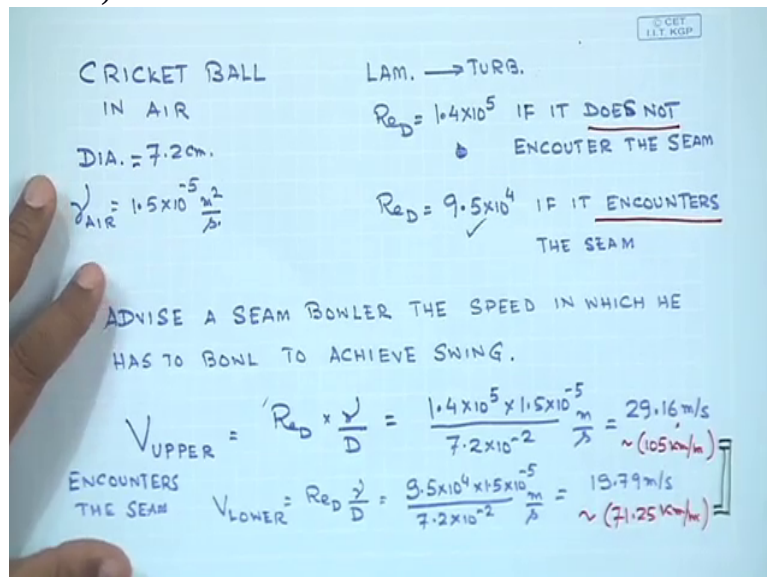 © CET
I.I.T. KGP
CRICKET BALL
IN AIR
DIA. = 7.2 cm.
γ_AIR = 1.5×10^-5 m²/s.
LAM. → TURB.
Re_D = 1.4×10^5 IF IT DOES NOT
ENCOUTER THE SEAM
Re_D = 9.5×10^4 IF IT ENCOUNTERS
✓
THE SEAM
ADVISE A SEAM BOWLER THE SPEED IN WHICH HE
HAS TO BOWL TO ACHIEVE SWING.
V_UPPER = Re_D × γ/D = 1.4×10^5 × 1.5×10^-5 / 7.2×10^-2 m/s = 29.16 m/s
~(105 km/hr)
ENCOUNTERS
THE SEAM
V_LOWER = Re_D γ/D = 9.5×10^4 × 1.5×10^-5 / 7.2×10^-2 m/s = 19.79 m/s
~(71.25 km/hr)